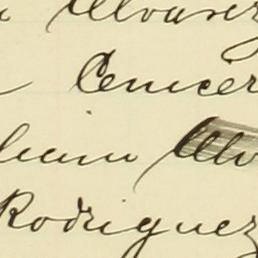 Alvarez
Cenicer
Alv
Rodriguez